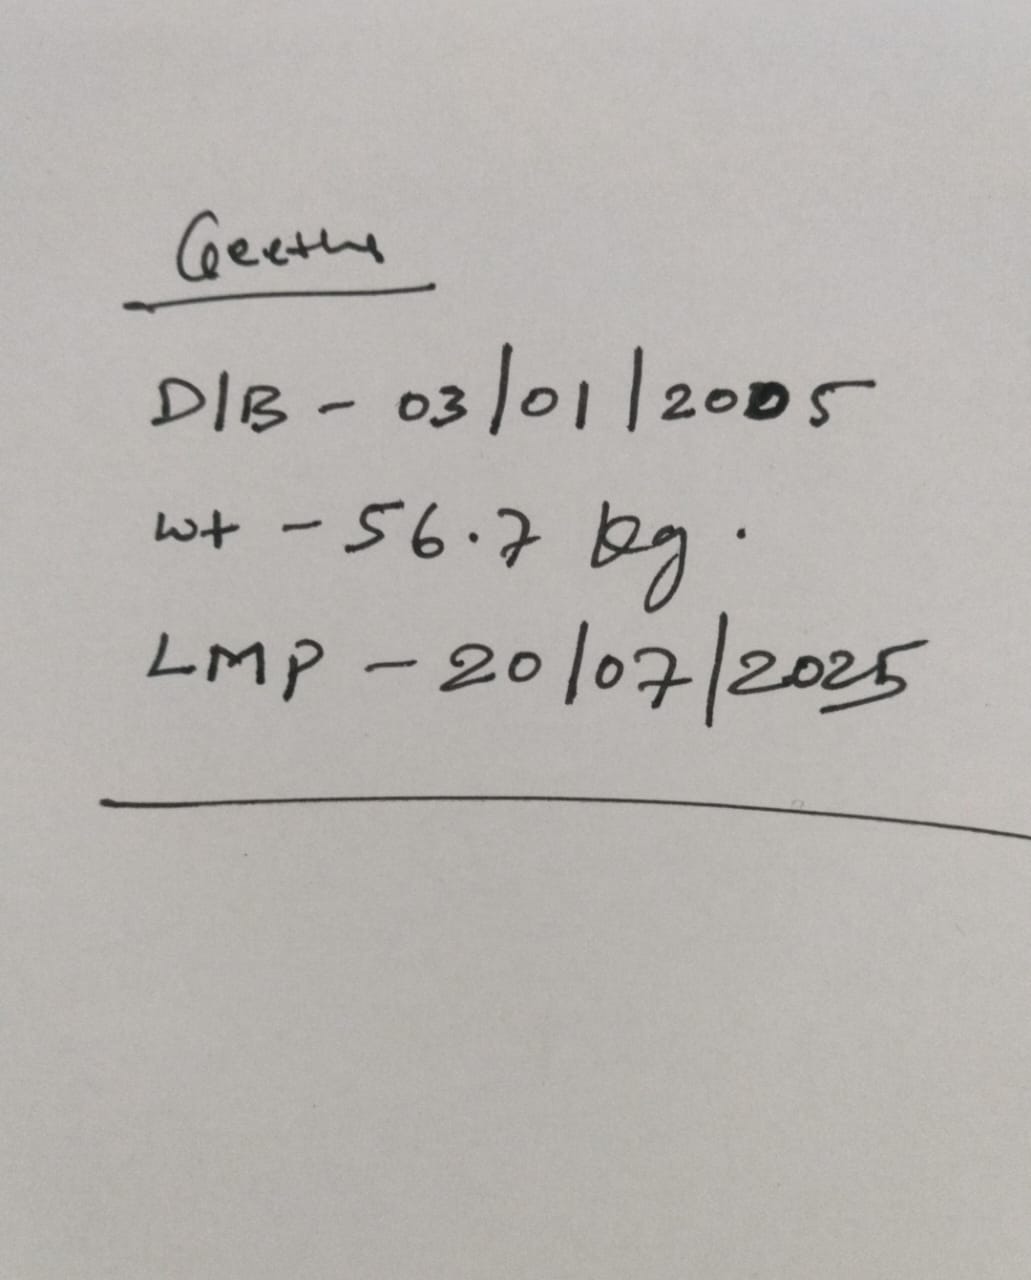 Geetha
D/B - 03/01/2005
wt - 56.7 kg.
LMP - 20/07/2025